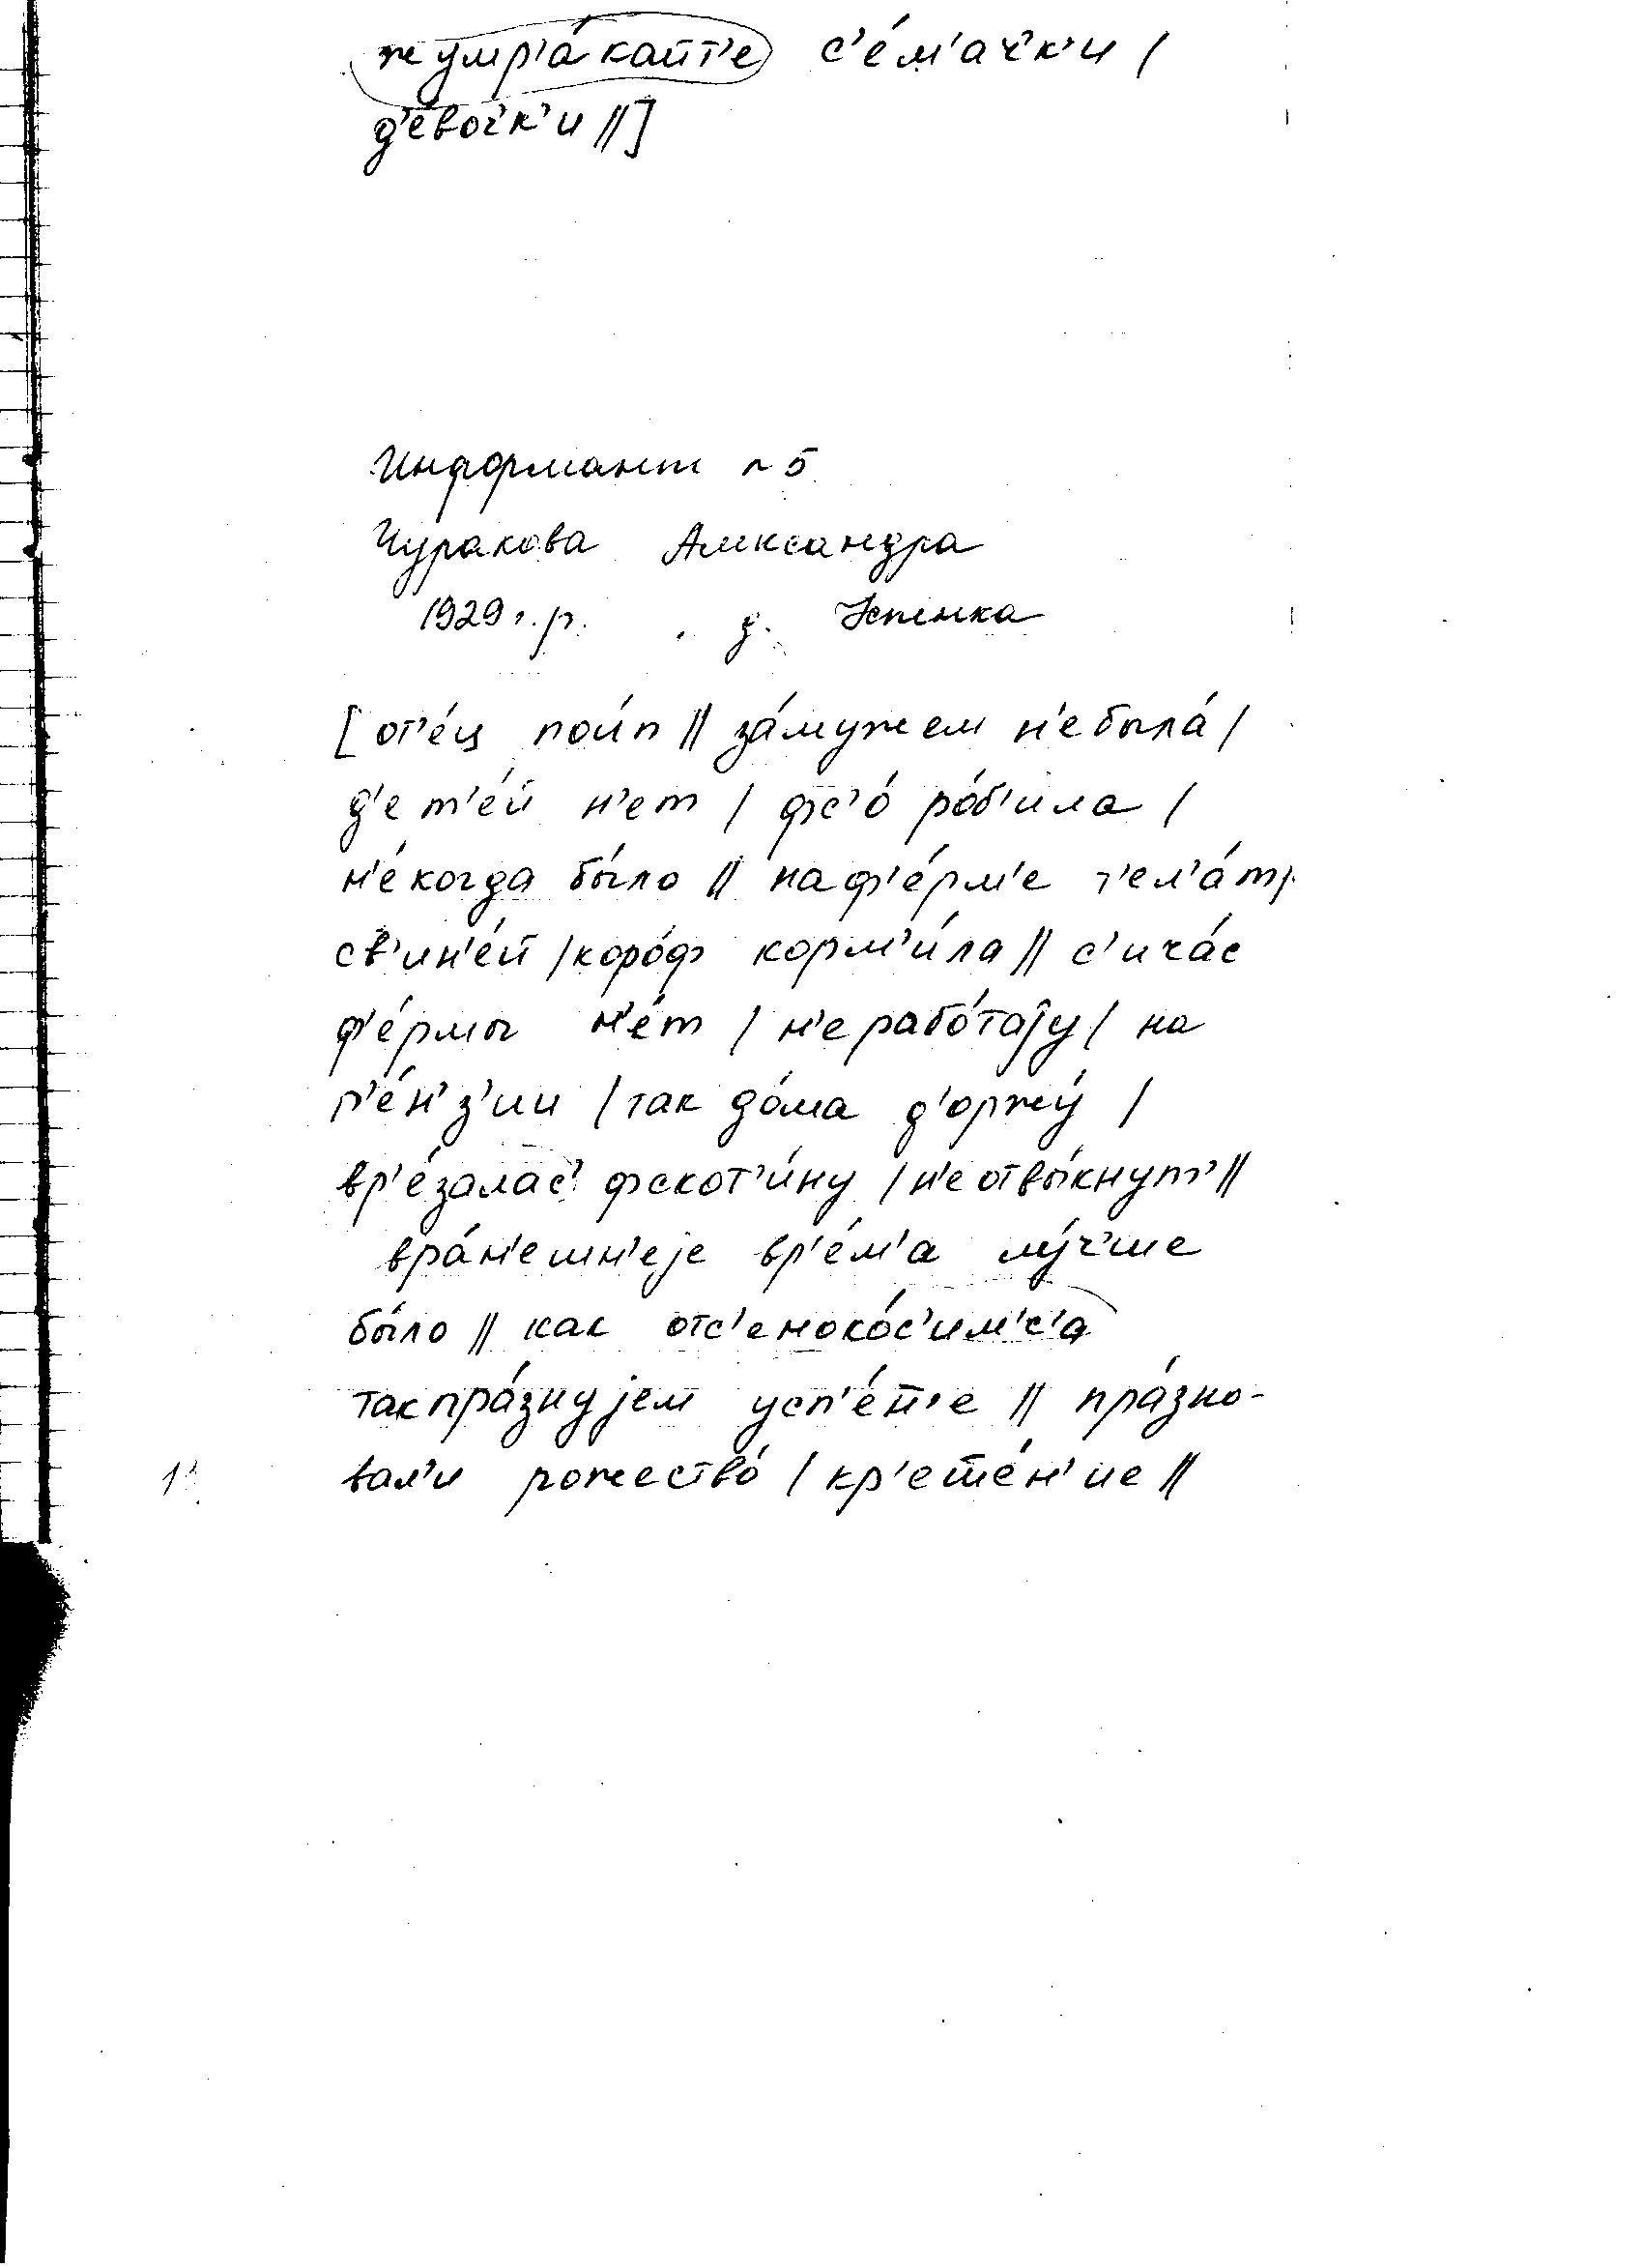 жумр'а́кайт'е с'е́м'ач'к'и /
д'е́воч'к'и //]
Информант №5
Чуракова Александра
1929 г.р. д. Успенка
[от'е́ц пои́п // за́мужем н'е была́ /
д'ет'е́й н'ет / фс'о́ ро́б'ила /
н'е́когда бы́ло // на ф'е́рм'е т'ел'а́т /
св'ин'е́й / коро́ф корм'и́ла // с'ича́с
ф'е́рмы н'е́т / н'е рабо́таjу / на
п'е́н'з'ии / так до́ма д'оржу́ /
вр'е́залас' фскот'и́ну / н'е отвы́кнут' //
вра́н'ешн'еjе вр'е́м'а лу́ч'ше
бы́ло // как отс'еноко́с'им'с'а
так пра́знуjем усп'е́н'е // пра́зно-
вал'и рожество́ / кр'еше́н'ие //